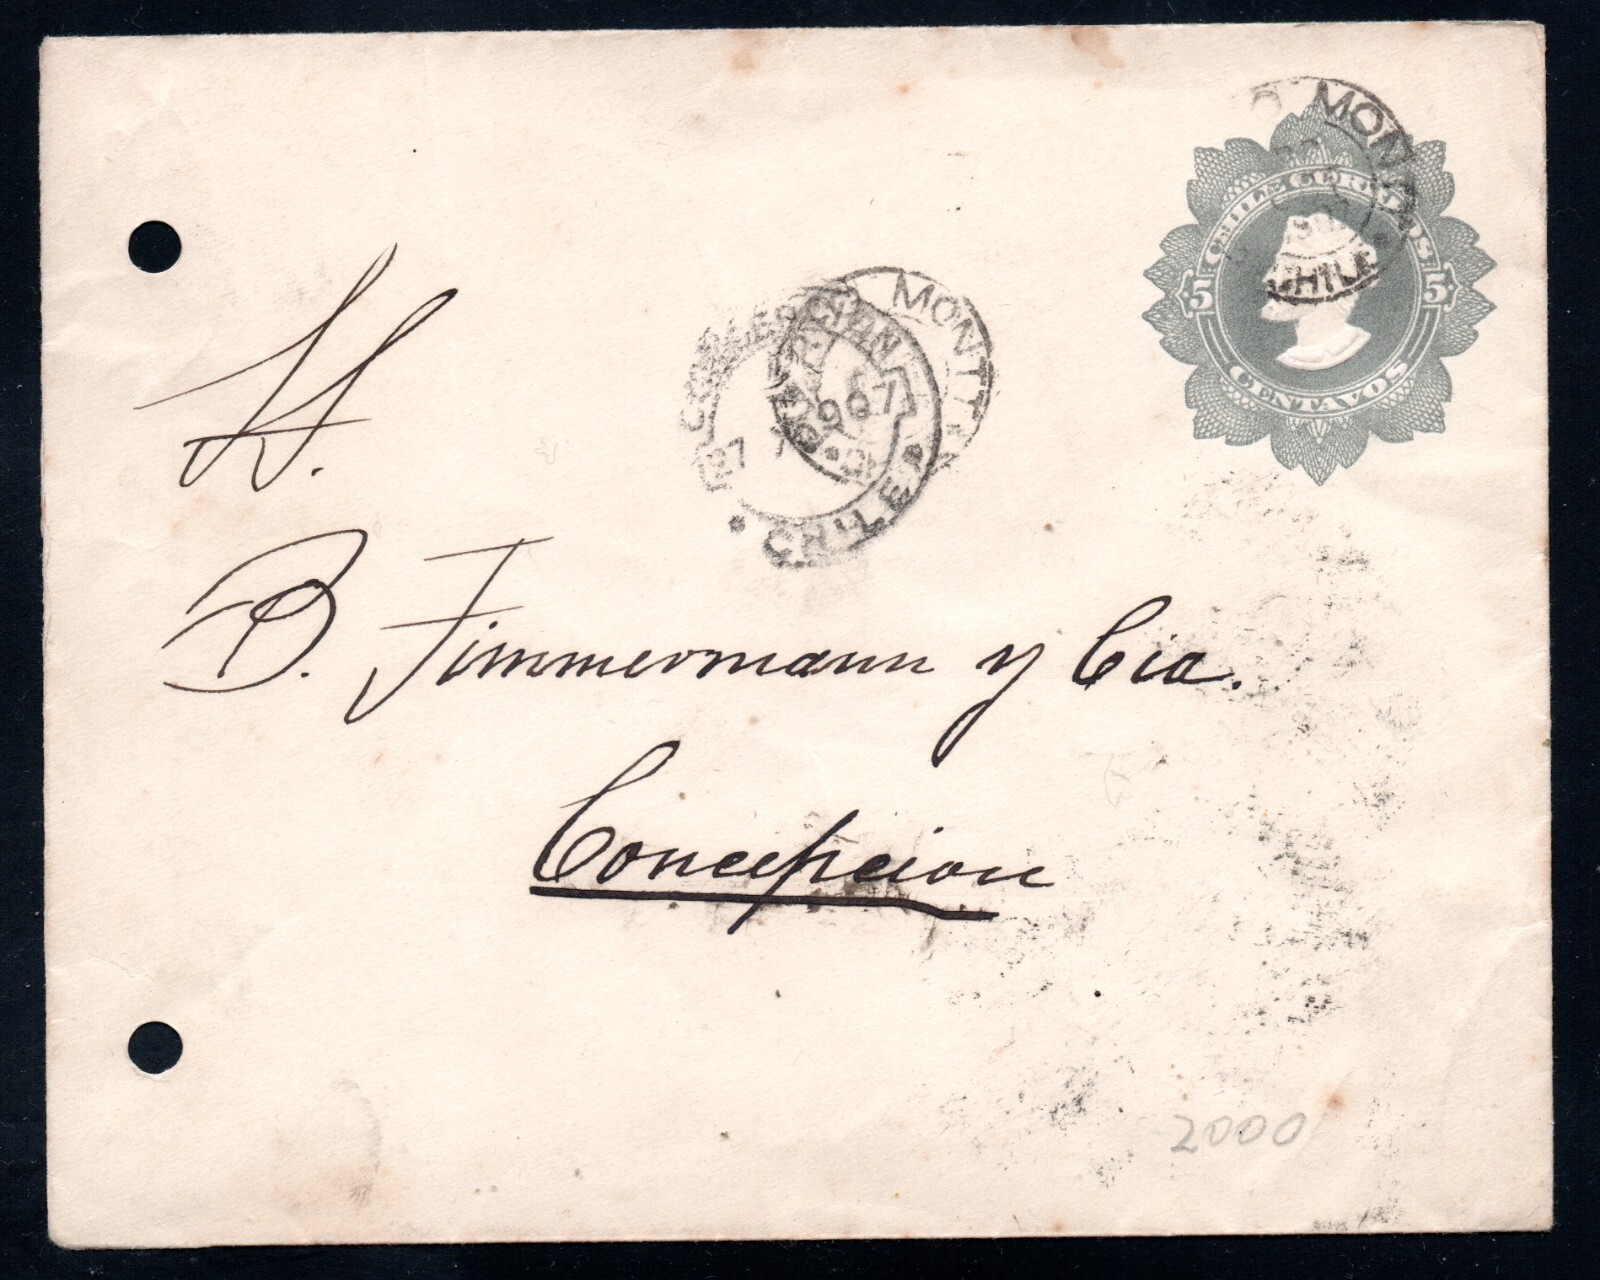 MONTT
CHILE
CHILE CORREOS
5 5
CENTAVOS
MONTT
907
27
CHILE
H.
B. Timmermann y Cia.
Concepcion
2000